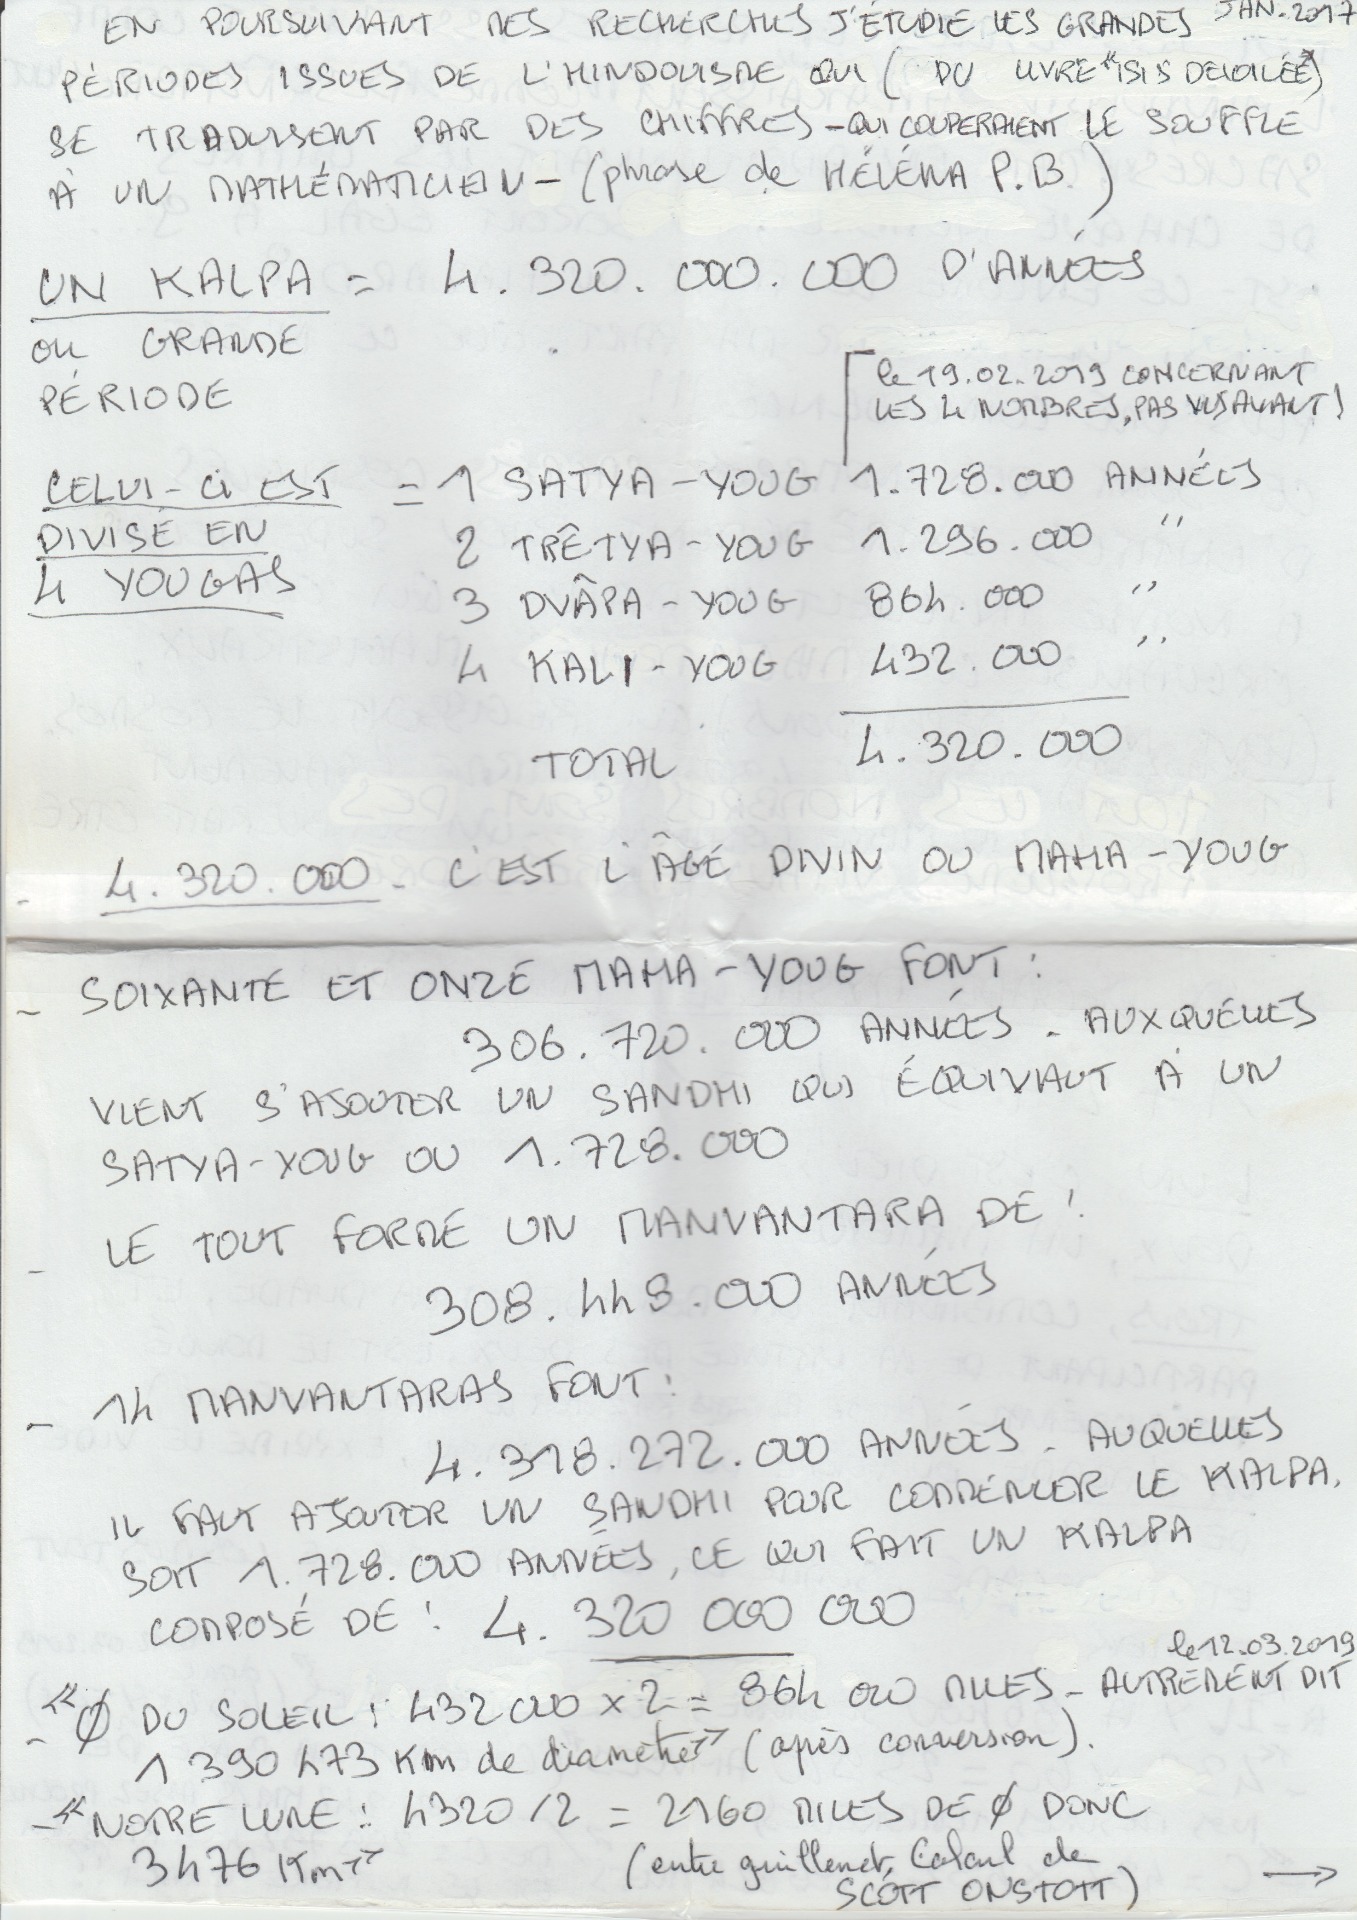 JAN. 2017
EN POURSUIVANT MES RECHERCHES J'ÉTUDIE LES GRANDES
PÉRIODES ISSUES DE L'HINDOUISME QUI ( DU LIVRE "ISIS DEVOILÉE")
SE TRADUISENT PAR DES CHIFFRES - QUI COUPERAIENT LE SOUFFLE
À UN MATHÉMATICIEN - (phrase de HÉLÉNA P.B.)
UN KALPA = 4.320.000.000 D'ANNÉES
OU GRANDE
PÉRIODE
le 19.02.2019 CONCERNANT
LES 4 NOMBRES, PAS VUS AVANT!
CELUI-CI EST = 1 SATYA-YOUG 1.728.000 ANNÉES
DIVISÉ EN 2 TRÊTYA-YOUG 1.296.000 "
4 YOUGAS 3 DVÂPA-YOUG 864.000 "
4 KALI-YOUG 432.000 "
TOTAL 4.320.000
- 4.320.000 - C'EST L'ÂGE DIVIN OU MAHA-YOUG
- SOIXANTE ET ONZE MAHA-YOUG FONT :
306.720.000 ANNÉES - AUXQUELLES
VIENT S'AJOUTER UN SANDHI QUI ÉQUIVAUT À UN
SATYA-YOUG OU 1.728.000
- LE TOUT FORME UN MANVANTARA DE :
308.448.000 ANNÉES
- 14 MANVANTARAS FONT :
4.318.272.000 ANNÉES - AUQUELLES
IL FAUT AJOUTER UN SANDHI POUR COMMENCER LE KALPA,
SOIT 1.728.000 ANNÉES, CE QUI FAIT UN KALPA
COMPOSÉ DE : 4.320 000 000
le 12.03.2019
- "Ø DU SOLEIL : 432 000 x 2 = 864 000 MILES - AUTREMENT DIT
1 390 473 Km de diamètre" (après conversion).
- "NOTRE LUNE : 4320 / 2 = 2160 MILES DE Ø DONC
3476 Km"
(entre guillemet, Calcul de
SCOTT ONSTOTT) →